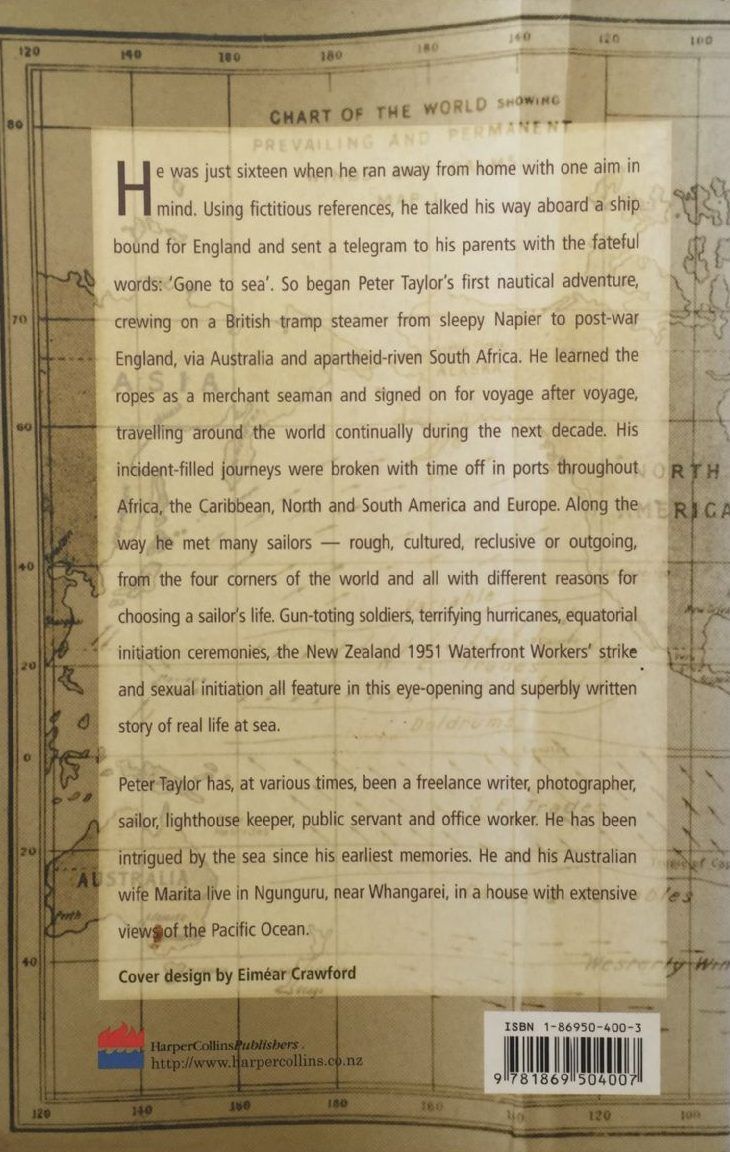 120 140 160 180 160 140 120 100
CHART OF THE WORLD SHOWING
80
PREVAILING AND PERMANENT
He was just sixteen when he ran away from home with one aim in
mind. Using fictitious references, he talked his way aboard a ship
bound for England and sent a telegram to his parents with the fateful
words: ‘Gone to sea’. So began Peter Taylor’s first nautical adventure,
70
crewing on a British tramp steamer from sleepy Napier to post-war
England, via Australia and apartheid-riven South Africa. He learned the
ASIA
ropes as a merchant seaman and signed on for voyage after voyage,
60
travelling around the world continually during the next decade. His
incident-filled journeys were broken with time off in ports throughout
NORTH
Africa, the Caribbean, North and South America and Europe. Along the
AMERICA
way he met many sailors — rough, cultured, reclusive or outgoing,
40
from the four corners of the world and all with different reasons for
choosing a sailor’s life. Gun-toting soldiers, terrifying hurricanes, equatorial
initiation ceremonies, the New Zealand 1951 Waterfront Workers’ strike
20
and sexual initiation all feature in this eye-opening and superbly written
story of real life at sea.
Doldrums
0
Peter Taylor has, at various times, been a freelance writer, photographer,
sailor, lighthouse keeper, public servant and office worker. He has been
20
intrigued by the sea since his earliest memories. He and his Australian
AUSTRALIA
wife Marita live in Ngunguru, near Whangarei, in a house with extensive
Perth
views of the Pacific Ocean.
40
Westerly Win
Cover design by Eiméar Crawford
HarperCollinsPublishers
http://www.harpercollins.co.nz
ISBN 1-86950-400-3
9 781869 504007
120 140 160 180 160 140 120 100